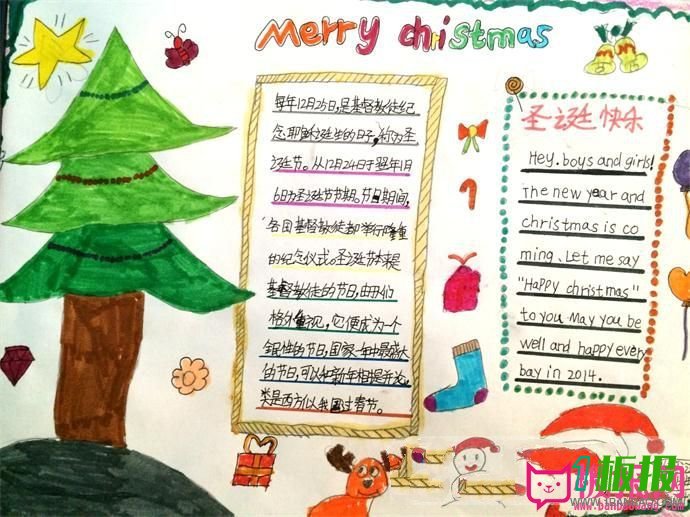 Merry christmas
每年12月25日,是基督教徒纪
念耶稣诞生的日子,称为圣
诞节。从12月24日于翌年1月
6日为圣诞节节期。节日期间,
各国基督教徒都举行隆重
的纪念仪式。圣诞节本来是
基督教徒的节日,由于人们
格外重视,它便成为一个
全民性的节日,国家一年中最盛大
的节日,可以和新年相提并论,
类是西方以我国过春节。
圣诞快乐
Hey. boys and girls!
The new year and
christmas is co
ming. Let me say
"Happy christmas"
to you May you be
well and happy every
bay in 2014.
板报